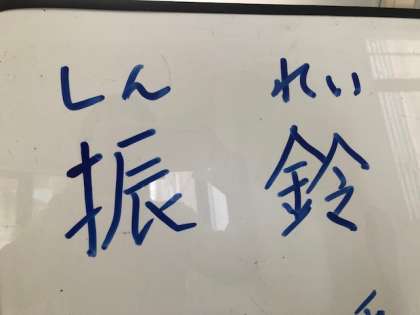 しん れい
振 鈴